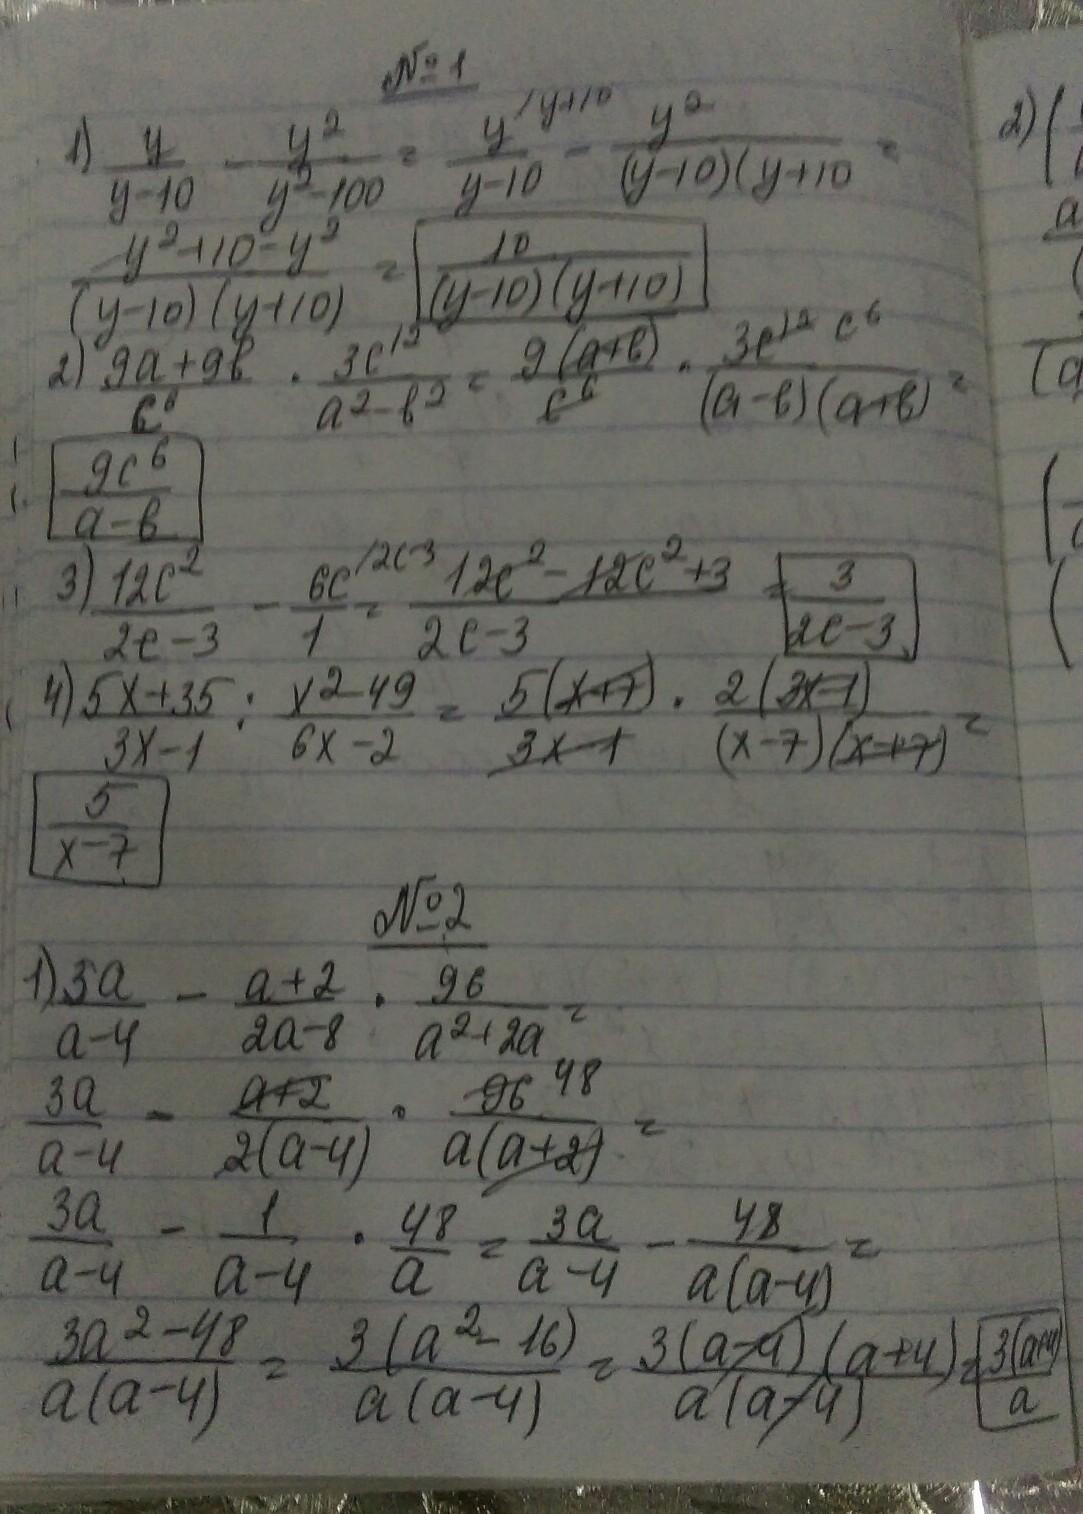 №1
1) y/(y-10) - y²/(y²-100) = y^{/y+10}/(y-10) - y²/((y-10)(y+10 =
(y²+10-y²)/((y-10)(y+10)) = 10/((y-10)(y+10))
2) (9a+9b)/c⁶ · 3c¹²/(a²-b²) = 9(a+b)/c⁶ · 3c¹² c⁶/((a-b)(a+b)) =
9c⁶/(a-b)
3) 12c²/(2c-3) - 6c^{/2c-3}/1 = (12c²-12c²+3)/(2c-3) = 3/(2c-3)
4) (5x+35)/(3x-1) : (x²-49)/(6x-2) = 5(x+7)/(3x-1) · 2(3x-1)/((x-7)(x+7)) =
5/(x-7)
№2
1) 3a/(a-4) - (a+2)/(2a-8) · 96/(a²+2a) =
3a/(a-4) - (a+2)/(2(a-4)) · 96 48/(a(a+2)) =
3a/(a-4) - 1/(a-4) · 48/a = 3a/(a-4) - 48/(a(a-4)) =
(3a²-48)/(a(a-4)) = 3(a²-16)/(a(a-4)) = 3(a-4)(a+4)/(a(a-4)) = 3(a+4)/a
2)(